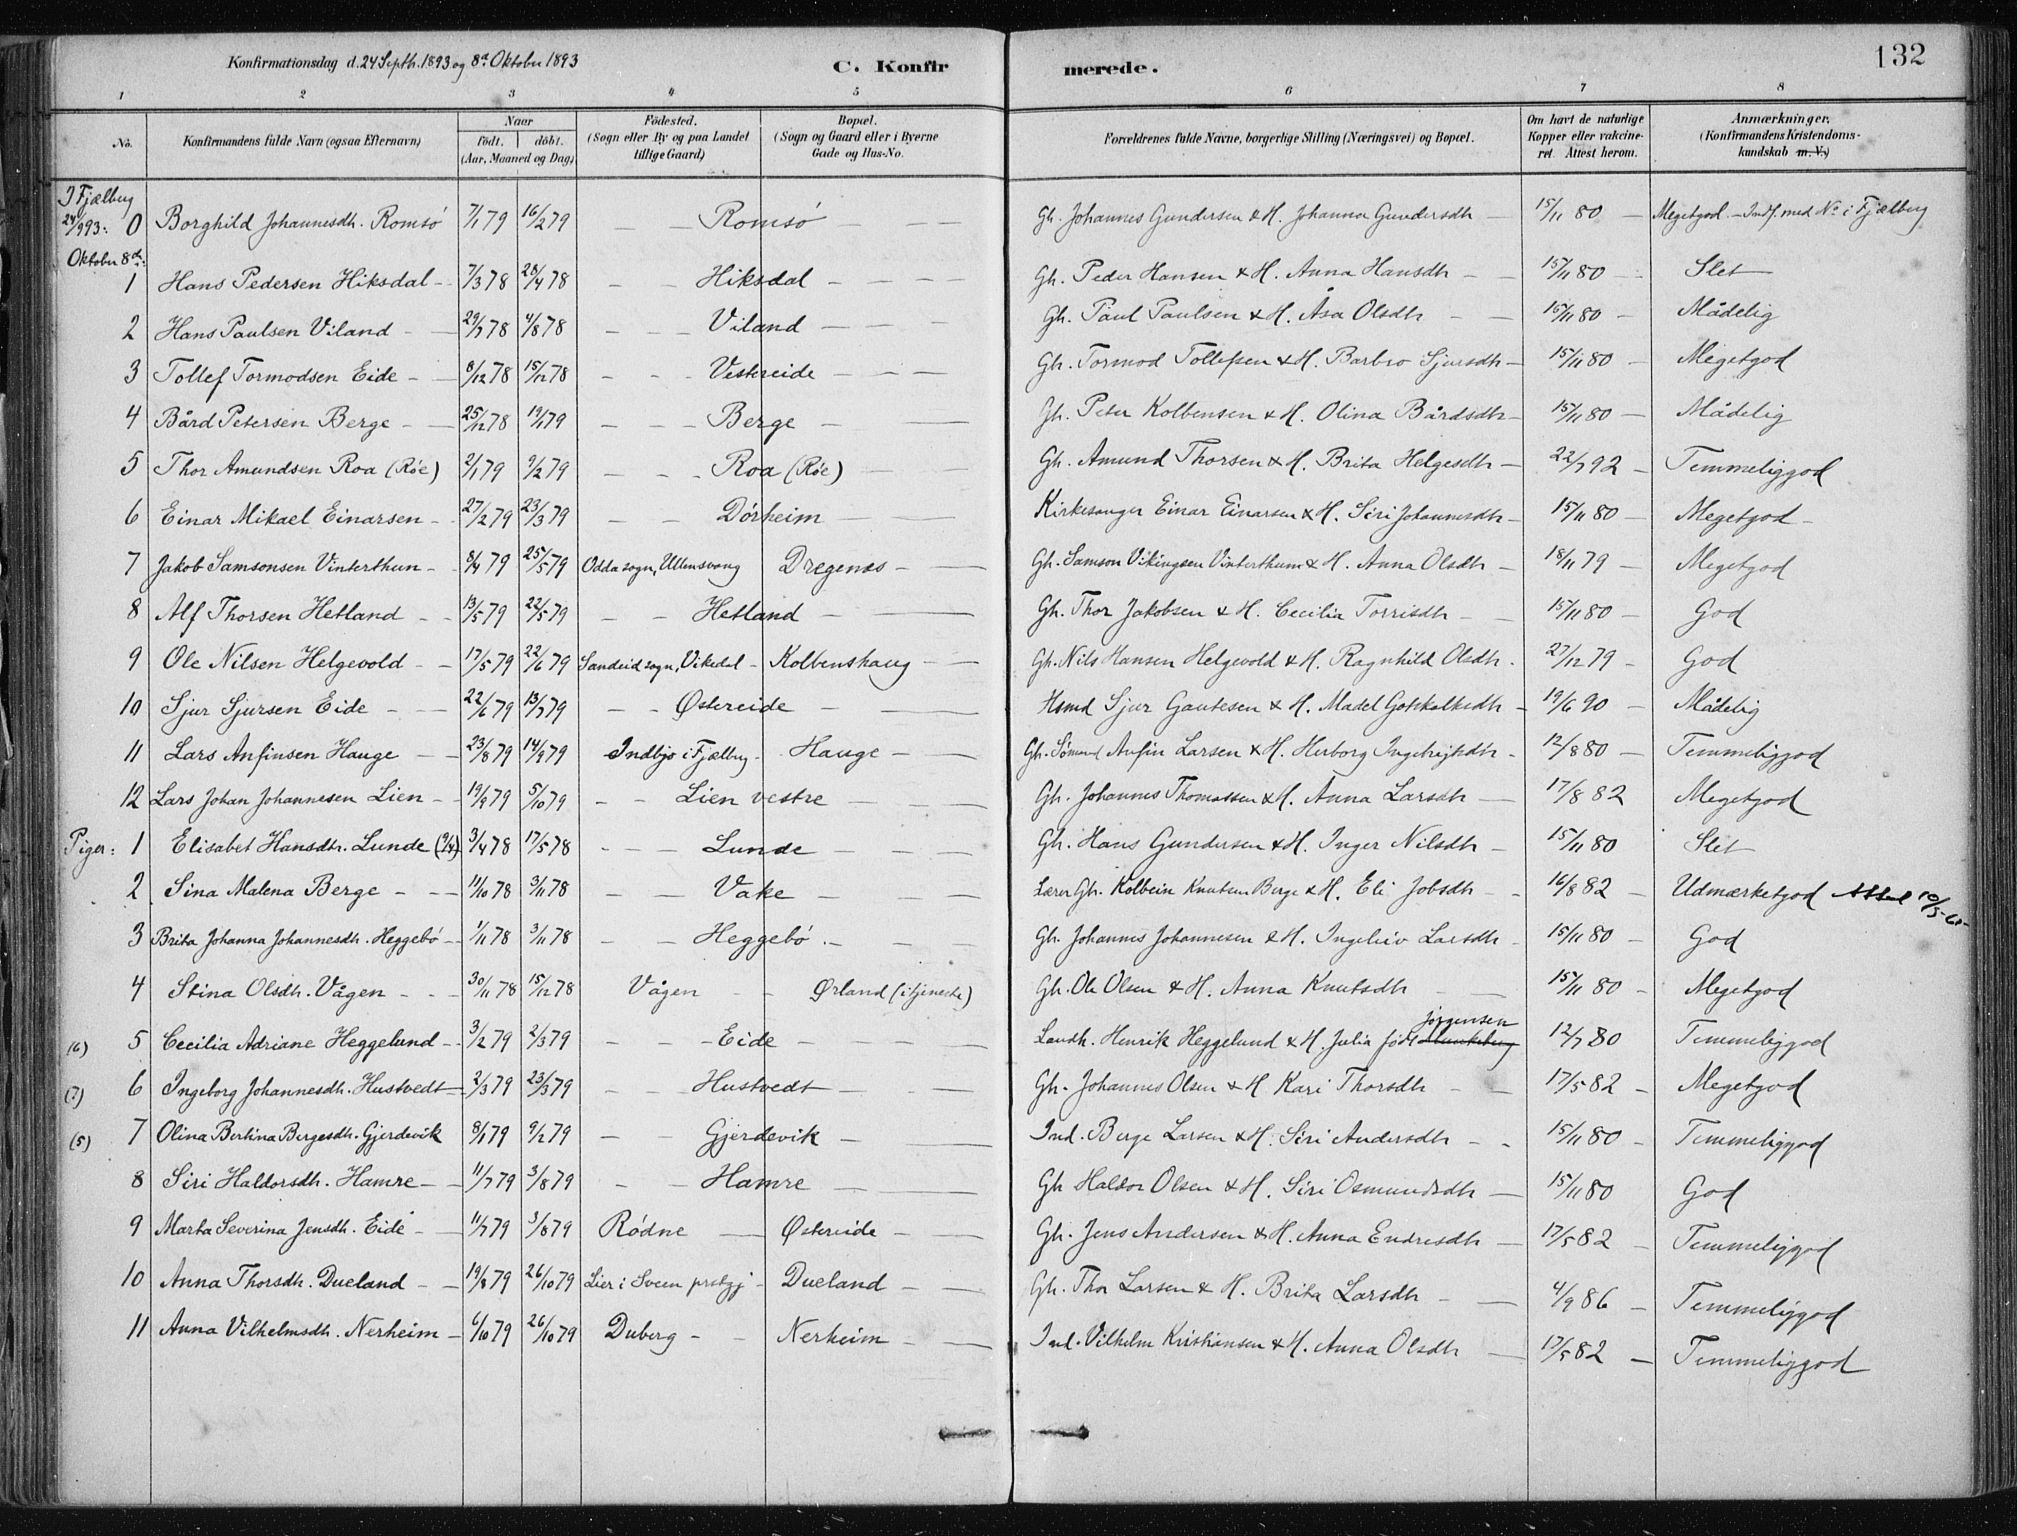 Konfirmationsdag d. 24 Septb. 1893 og 8de Oktober 1893 C. Konfirmerede. 132
1 2 3 4 5 6 7 8
No. Konfirmandens fulde Navn (ogsaa Efternavn) Naar født. døbt. (Aar, Maaned og Dag) Födested. (Sogn eller By og paa Landet tillige Gaard) Bopæl. (Sogn og Gaard eller i Byerne Gade og Hus-No. Forældrenes fulde Navne, borgerlige Stilling (Næringsvei) og Bopæl. Om havt de naturlige Kopper eller vakcineret. Attest herom. Anmærkninger. (Konfirmandens Kristendomskundskab m. V.)
I Fjælberg
24/9 93: 0 Borghild Johannesdh. Romsö 7/1 79 16/2 79 – – Romsö – – Gh. Johannes Gundersen & H. Johanna Gundersdh – 15/11 80 – Megetgod – Indf. med No i Fjælberg
Oktober 8de:
1 Hans Pedersen Hiksdal – 7/3 78 28/4 78 – – Hiksdal – – – Gh. Peder Hansen & H. Anna Hansdh – – 15/11 80 – Slet
2 Hans Paulsen Viland – – 29/7 78 4/8 78 – – Viland – – – Gh. Paul Paulsen & H. Åsa Olsdh – – 15/11 80 – Mådelig
3 Tollef Tormodsen Eide – – 8/12 78 15/12 78 – – – Vestereide – – – Gh. Tormod Tollefsen & H. Barbro Sjursdh – 15/11 80 – Megetgod
4 Bård Petersen Berge – – 25/12 78 19/1 79 – – – Berge – – Gh. Peter Kolbensen & H. Olina Bårdsdh – 15/11 80 – Mådelig
5 Thor Amundsen Roa (Röe) 2/1 79 9/2 79 – – – Roa (Röe) – Gh. Amund Thorsen & H. Brita Helgesdh – 22/7 92 – Temmeliggod
6 Einar Mikael Einarsen – – 27/2 79 23/3 79 – – Dörheim – Kirkesanger Einar Einarsen & H. Siri Johannesdh – 15/11 80 – Megetgod –
7 Jakob Samsonsen Vinterthun – – 8/4 79 25/5 79 Odda sogn, Ullensvang Dregenæs – – Gh. Samson Vikingsen Vinterthun & H. Anna Olsdh – 18/11 79 – Megetgod
8 Alf Thorsen Hetland – – 13/5 79 22/5 79 – – Hetland – – Gh. Thor Jakobsen & H. Cecilia Torrisdh – – 15/11 80 – God
9 Ole Nilsen Helgevold – – 17/5 79 22/6 79 Sandeid sogn, Vikedal – Kolbenshaug – – Gh. Nils Hansen Helgevold & H. Ragnhild Olsdh. 27/12 79 – God
10 Sjur Sjursen Eide – – – 22/6 79 13/7 79 – – Østereide – – Hsmd Sjur Gautesen & H. Madel Gotskalksdh – 19/6 90 – Mådelig
11 Lars Anfinsen Hauge – – 23/8 79 14/9 79 Indbjo i Fjælberg – Hauge – – Gh. Sömand Anfin Larsen & H. Herborg Ingebrigtsdh – 12/8 80 – Temmeliggod
12 Lars Johan Johannesen Lien – – 19/9 79 5/10 79 – – Lien vestre – – Gh. Johannes Thomassen & H. Anna Larsdh – 17/8 82 Megetgod
Piger: 1 Elisabet Hansdtr. Lunde (9/4) 3/4 78 17/5 78 – – – Lunde – – Gh. Hans Gundersen & H. Inger Nilsdh – 15/11 80 Slet
2 Sina Malena Berge – – – 11/10 78 3/11 78 – – Vake – – – Lærer Gh. Kolbein Knutsen Berge & H. Eli Jobsdh – – 16/8 82 – Udmærketgod Attest 10/5-60
3 Brita Johanna Johannesdh. Heggebö – – 1/11 78 3/11 78 – – Heggebö – – – Gh. Johannes Johannesen & H. Ingeleiv Larsdh – 15/11 80 – God
4 Stina Olsdh. Vågen – – – 30/11 78 15/12 78 Vågen – – Ørland (i tjeneste) Gh. Ole Olsen & H. Anna Knutsdh – – 15/11 80 – Megetgod
(6) 5 Cecilia Adriane Heggelund – – 3/2 79 2/3 79 – – – Eide – – – Landh. Henrik Heggelund & H. Julia født Jörgensen 12/7 80 – Temmeliggod
(7) 6 Ingeborg Johannesdh. Hustvedt – 2/3 79 23/3 79 – – – Hustvedt – – Gh. Johannes Olsen & H. Kari Thorsdh – – 17/5 82 – Megetgod
(5) 7 Olina Bertina Bergesdh. Gjerdevik 8/1 79 9/2 79 – – Gjerdevik – – Ind. Berge Larsen & H. Siri Andersdh – – 15/11 80 – Temmeliggod
8 Siri Haldorsdh. Hamre – – 11/7 79 3/8 79 – – Hamre – – Gh Haldor Olsen & H. Siri Osmundsdh – 15/11 80 God
9 Marta Severina Jensdh. Eide – – 11/7 79 3/8 79 Rödne – Østereide – – Gh. Jens Andersen & H. Anna Endresdh – 17/5 82 – Temmeliggod
10 Anna Thorsdh. Dueland – – 19/8 79 26/10 79 Lier i Sveen prstgj – Dueland – – Gh. Thor Larsen & H. Brita Larsdh – – 4/9 86 – Temmeliggod
11 Anna Vilhelmsdh. Nerheim – 6/10 79 26/10 79 Duberg – – Nerheim – – Ind. Vilhelm Kristiansen & H. Anna Olsdh – 17/5 82 – Temmeliggod